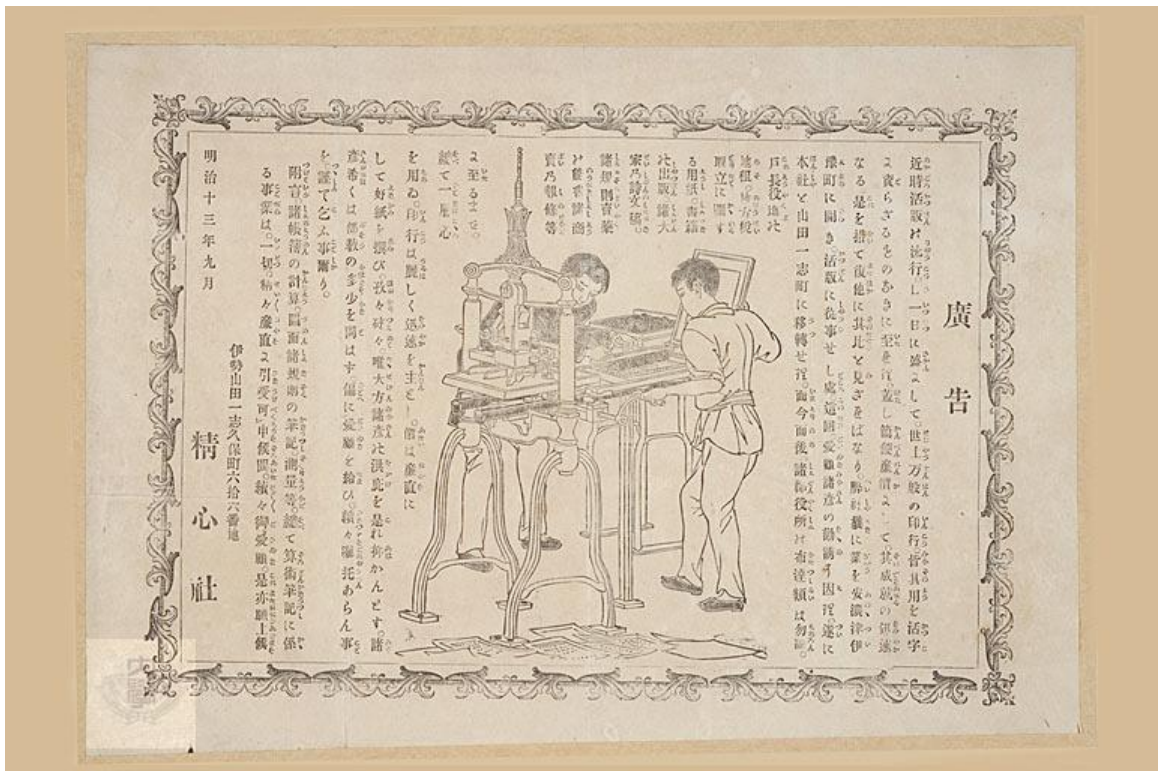 廣告
近時活版の流行し一日に盛よして。世上万般の印行。皆其用を活字
よ資らざるものなきに至れり。蓋し簡便廉價よして其成就の迅速
なる是を措て復他に其比を見ざればなり。弊社曩に業を安濃津伊
豫町に開き。活版に従事せし處這回愛顧諸彦の勧誘に因り。遂に
本社を山田一志町に移轉せり。而今而後。諸御役所は布達類は勿論。
戸長役場
地租。地方税
取立に關す
る用紙。書籍
出版諸大
家乃詩文稿。
諸規則賣藥
能書諸商
賣乃報條等
よ至るまで。
總て一層心
を用ゐ。印行は麗しく迅速を主とし。價は廉直に
して好紙を撰び。孜々砕々唯大方諸彦
彦希くは部数の多少を問はず偏に愛顧を給ひ。續々囑托あらん事
を。謹て乞ふ事爾り。
附言諸帳簿の計算。圖面諸規則の筆記。測量等。總て算術筆記に係
る事業は。一切。精々廉直よ引受可申候間。續々御愛顧。是亦願上候
明治十三年九月
伊勢山田一志久保町六拾六番地
精心社